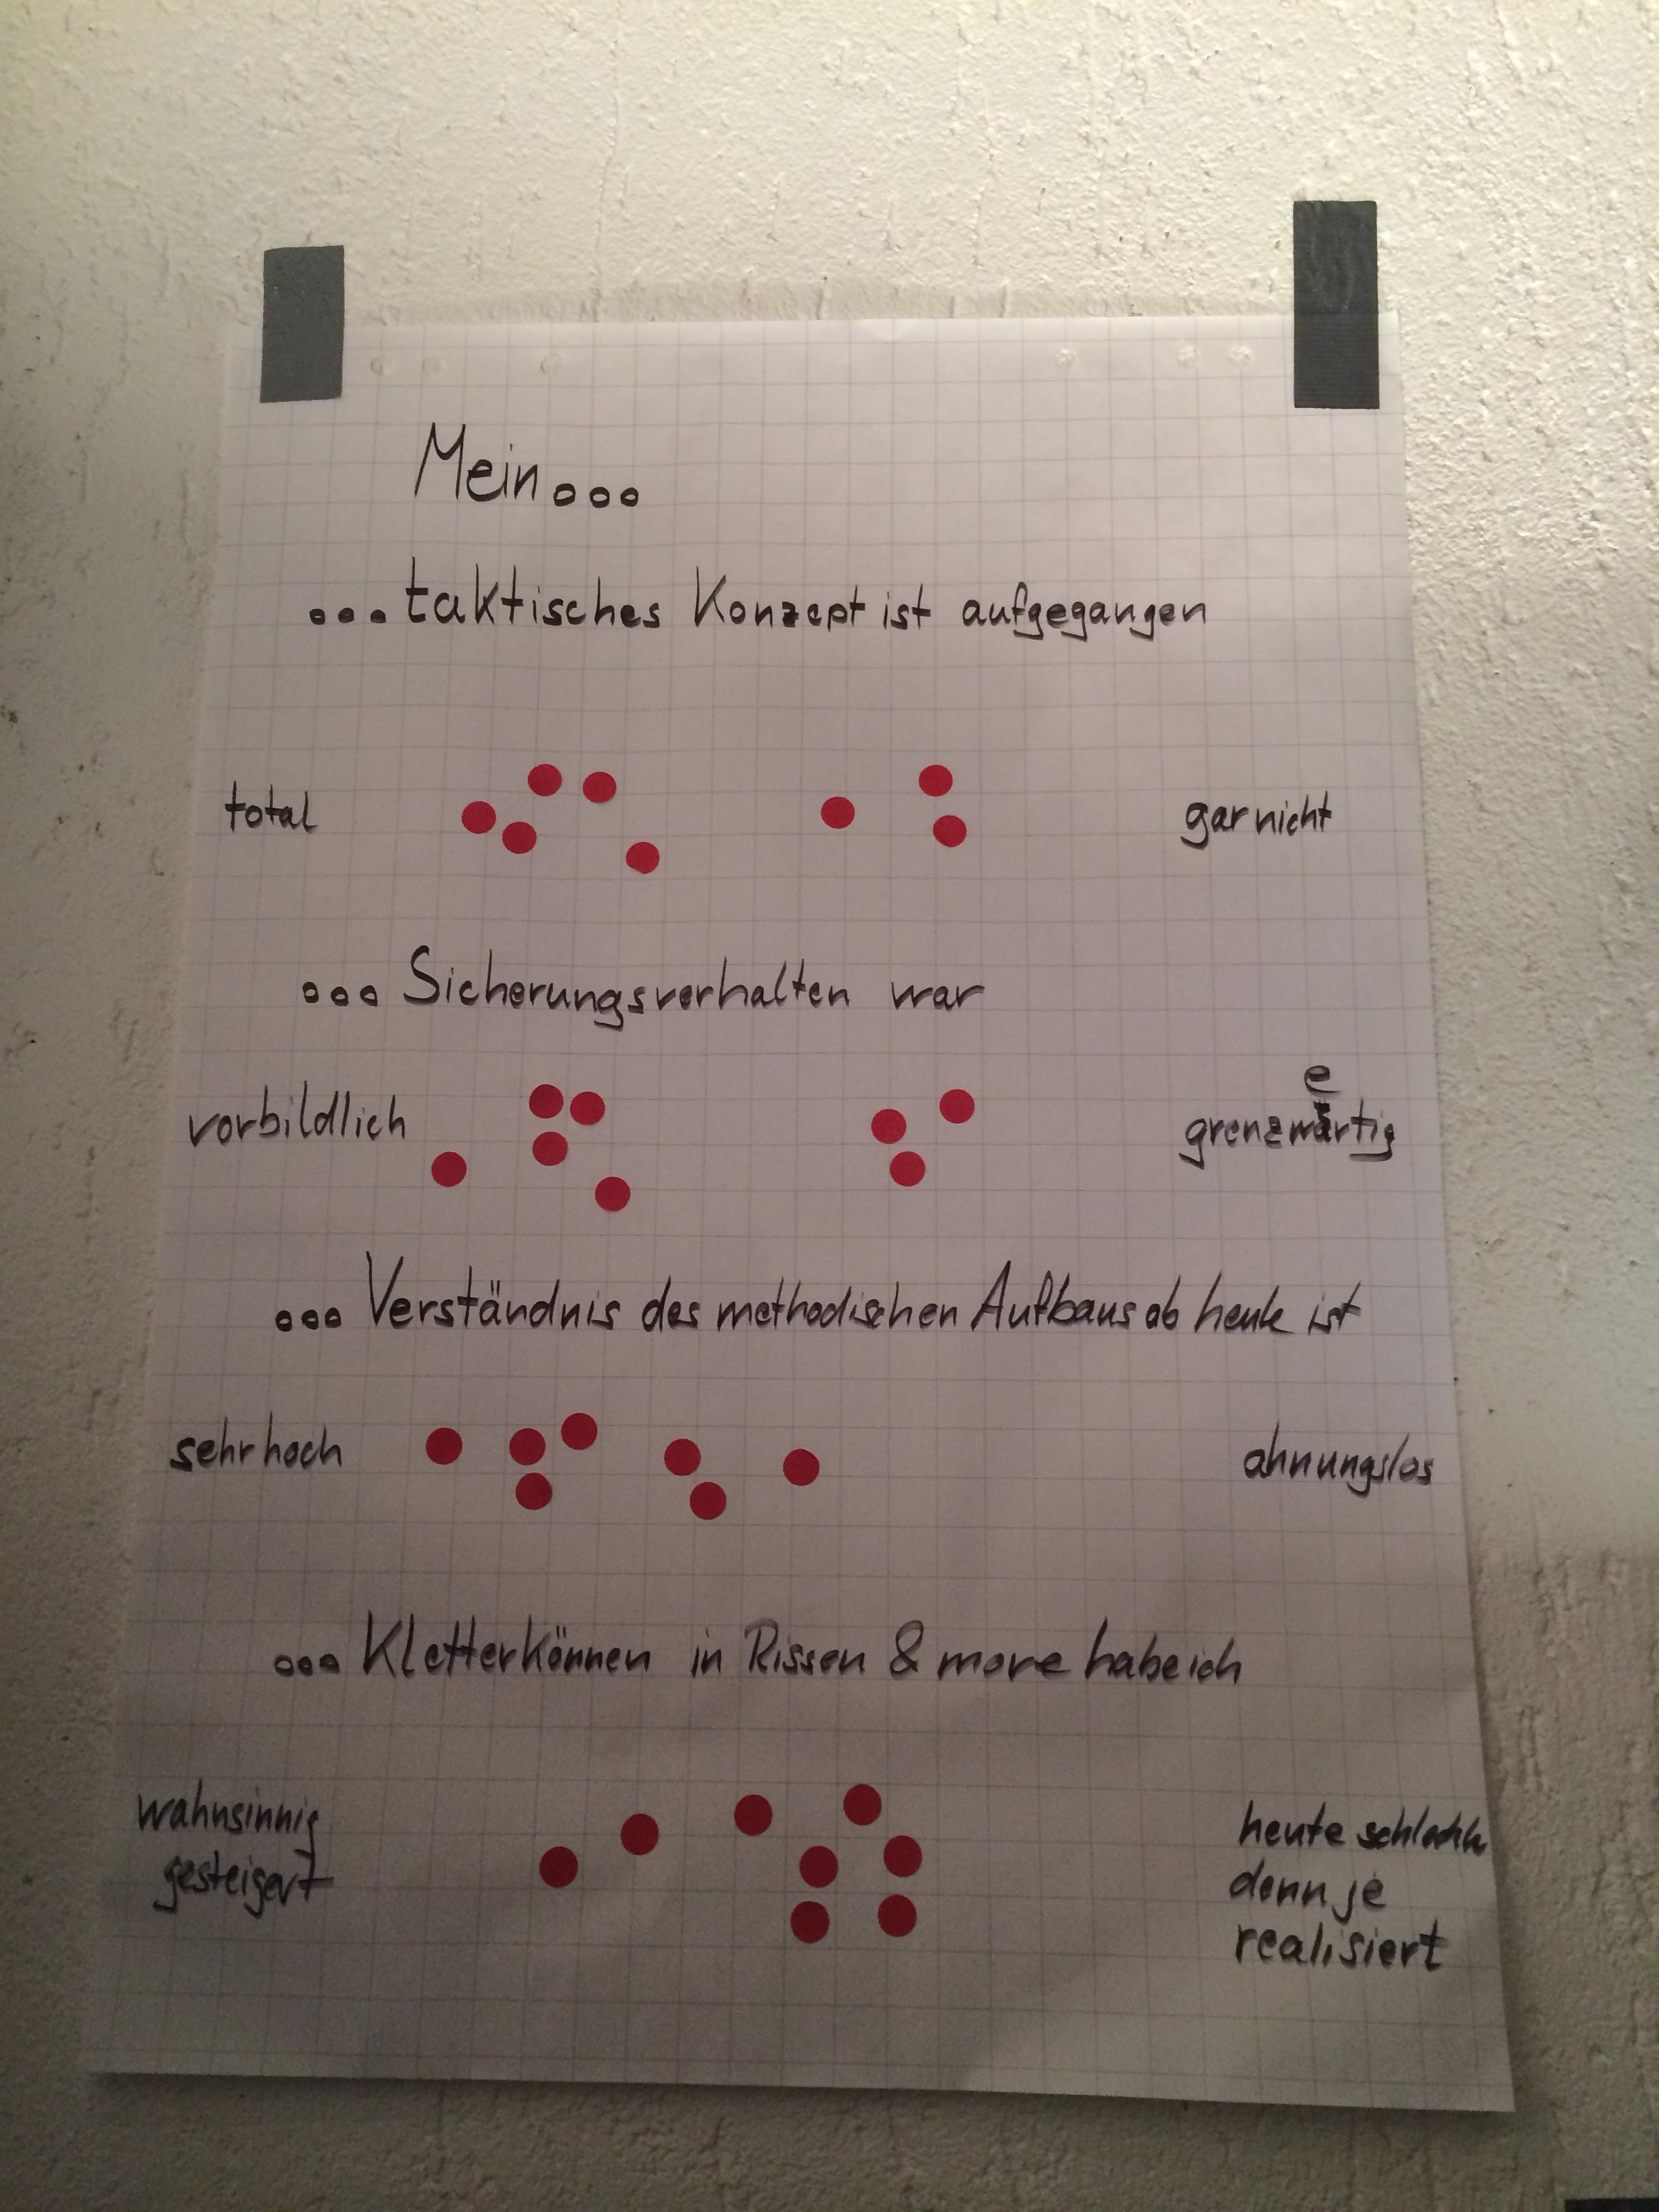 Mein...
...taktisches Konzept ist aufgegangen
total
gar nicht
... Sicherungsverhalten war
vorbildlich
grenzwertig
... Verständnis des methodischen Aufbaus ab heute ist
sehr hoch
ahnungslos
... Kletterkönnen in Rissen & more habe ich
wahnsinnig
gesteigert
heute schlechter
denn je
realisiert